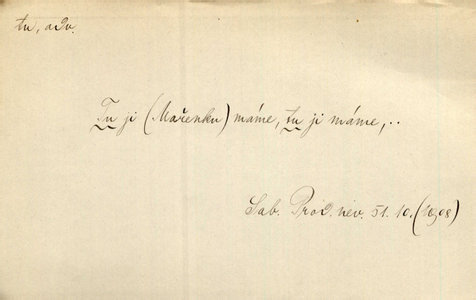 tu, adv.
Tu ji (Mařenku) máme, tu ji máme,..
Sab. Prod. nev. 51. 10. (1908)